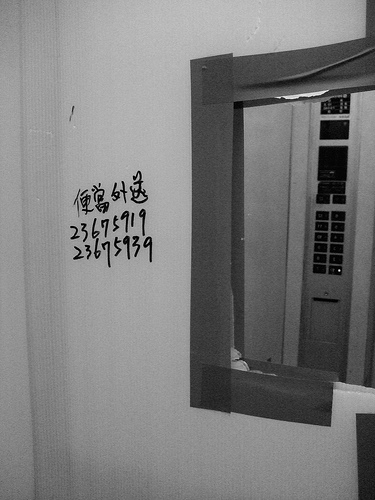 便當外送
23675919
23675939